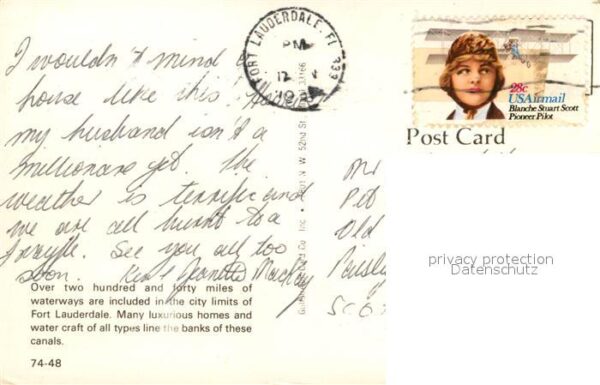 I wouldn't mind a
house like this.
my husband isn't a
millionaire yet. The
weather is terrific and
we are all burnt to a
frazzle. See you all too
soon. Jeanette Mackay
Over two hundred and forty miles of
waterways are included in the city limits of
Fort Lauderdale. Many luxurious homes and
water craft of all types line the banks of these
canals.
74-48
FORT LAUDERDALE, FL 333
PM
N. W. 52nd St.
33166
Card Co. Inc.
28c
USAirmail
Blanche Stuart Scott
Pioneer Pilot
Post Card
Mr
Old
Paisley
SCO
privacy protection
Datenschutz